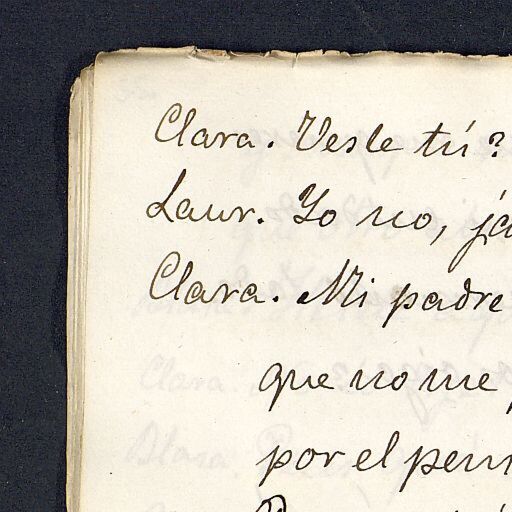 Clara. Vesle tú?
Laur. Yo no, já
Clara. Mi padre
que no me
por el pen